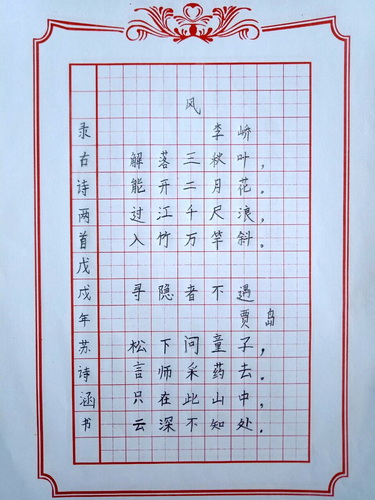 风
李峤
解落三秋叶，
能开二月花。
过江千尺浪，
入竹万竿斜。
寻隐者不遇
贾岛
松下问童子，
言师采药去。
只在此山中，
云深不知处。
录右诗两首戊戌年苏诗涵书